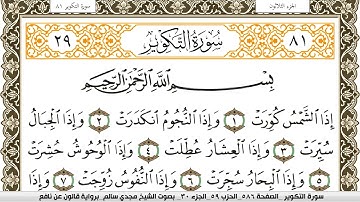 الجزء الثلاثون
سورة التكوير ٨١
٢٩ سُورَةُ التَّكْوِيرِ ٨١
بِسْمِ اللَّهِ الرَّحْمَٰنِ الرَّحِيمِ
إِذَا الشَّمْسُ كُوِّرَتْ ١ وَإِذَا النُّجُومُ انكَدَرَتْ ٢ وَإِذَا الْجِبَالُ
سُيِّرَتْ ٣ وَإِذَا الْعِشَارُ عُطِّلَتْ ٤ وَإِذَا الْوُحُوشُ حُشِرَتْ
٥ وَإِذَا الْبِحَارُ سُجِّرَتْ ٦ وَإِذَا النُّفُوسُ زُوِّجَتْ ٧ وَإِذَا
سورة التكوير _ الصفحة ٥٨٦_ الحزب ٥٩_ الجزء ٣٠ _ بصوت الشيخ مجدي سالم_ برواية قالون عن نافع